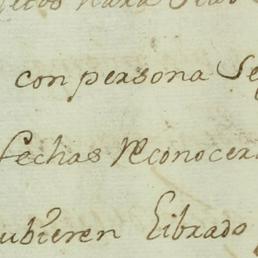 con persona Se
fechas Reconocer
ubieren Librado